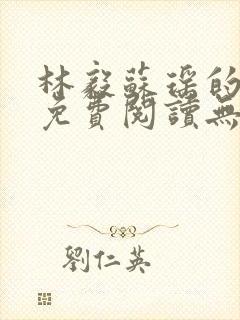 林毅蘇瑤的
免費閱讀無
劉仁英